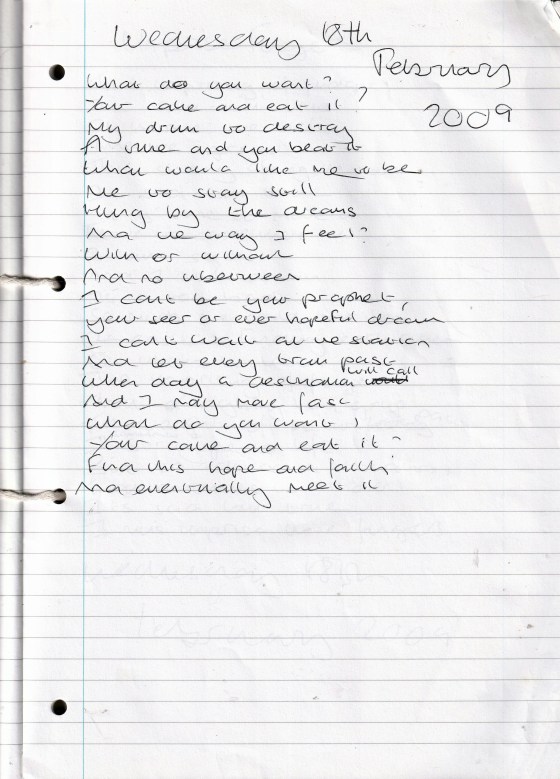 Wednesday 18th
February
2009
What do you want?
Your cake and eat it?
My drum to destroy
A time and you beat it
What would like me to be
Me to stay still
Hung by the dreams
And the way I feel?
With or without
And no inbetween
I cant be your prophet,
your seer or ever hopeful dream
I cant wait at the station
And let every train past
When day a destination will call
And I may move fast
What do you want,
Your cake and eat it?
Find this hope and faith
And eventually meet it